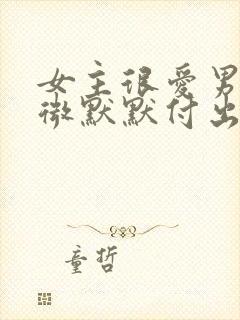 女主很爱男
微默默付出
童哲